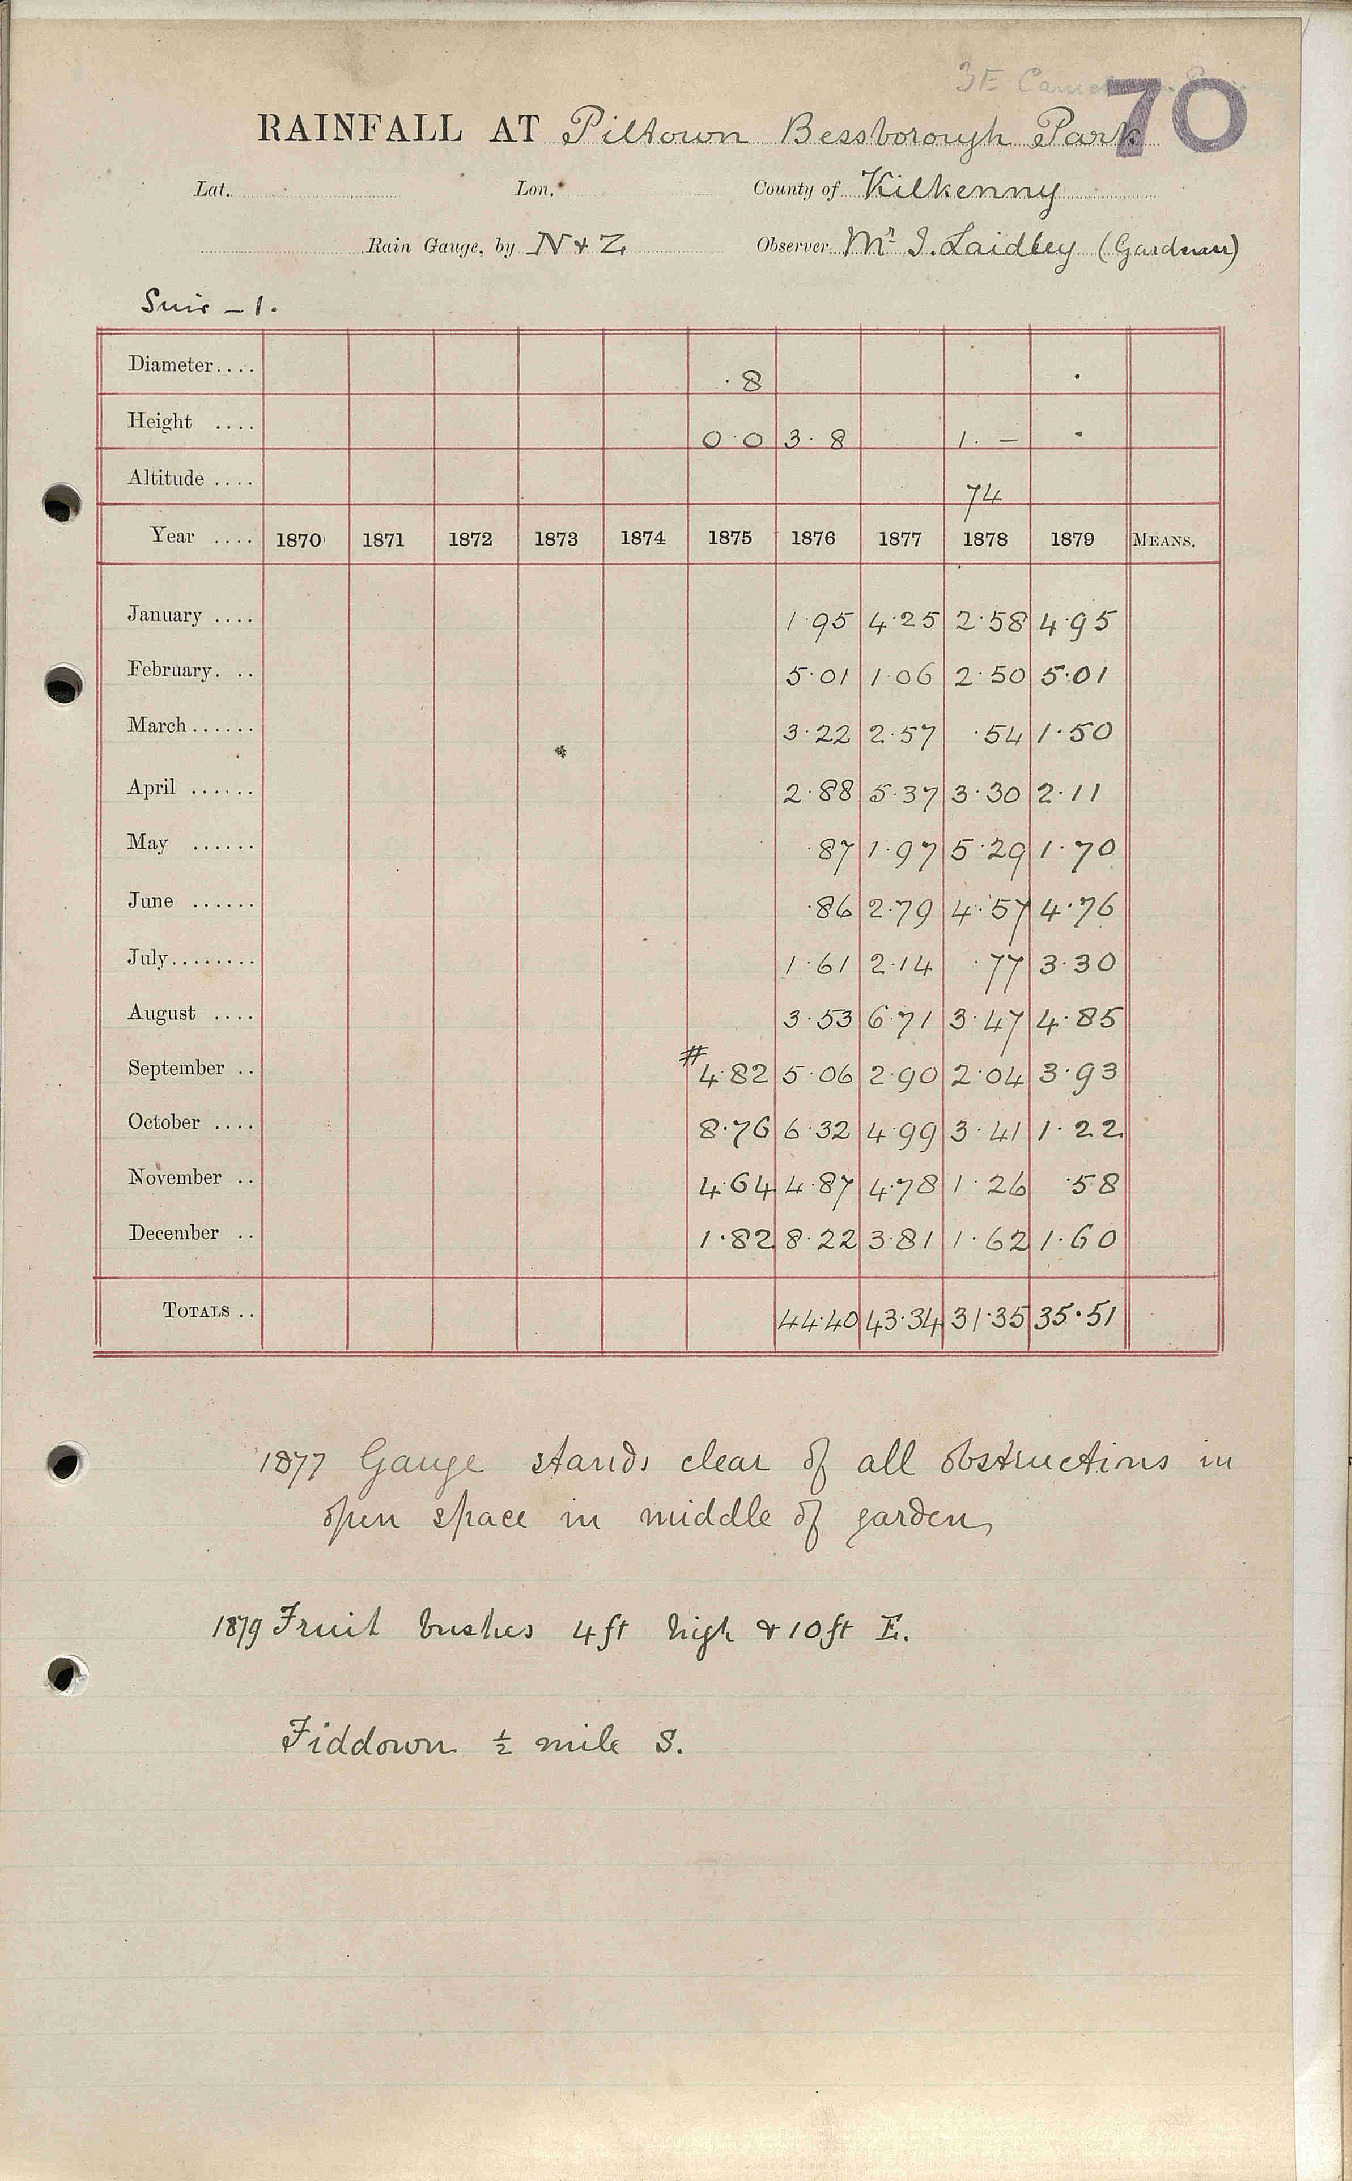 70
RAINFALL AT Piltown Bessborough Park
Lat. Lon. County of Kilkenny
Rain Gauge, by N & Z Observer Mr J. Laidley (Gardener)
Suir - 1.
Diameter.... ·8
Height .... 0·0 3·8 1·-
Altitude .... 74
Year .... 1870 1871 1872 1873 1874 1875 1876 1877 1878 1879 MEANS.
January .... 1·95 4·25 2·58 4·95
February. .. 5·01 1·06 2·50 5·01
March...... 3·22 2·57 ·54 1·50
April ...... 2·88 5·37 3·30 2·11
May ...... ·87 1·97 5·29 1·70
June ...... ·86 2·79 4·57 4·76
July........ 1·61 2·14 ·77 3·30
August .... 3·53 6·71 3·47 4·85
September .. #4·82 5·06 2·90 2·04 3·93
October .... 8·76 6·32 4·99 3·41 1·22
November .. 4·64 4·87 4·78 1·26 ·58
December .. 1·82 8·22 3·81 1·62 1·60
TOTALS .. 44·40 43·34 31·35 35·51
1877 Gauge stands clear of all obstructions in
open space in middle of garden
1879 Fruit bushes 4ft high & 10ft E.
Fiddown ½ mile S.